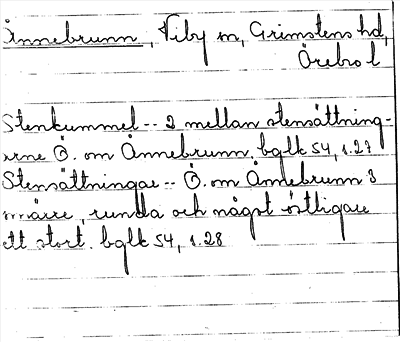 Ånnebrunn, Viby sn, Grimstens hd,
Örebro l
Stenkummel -- 2 mellan stensättning-
arne Ö. om Ånnebrunn. bglk 54, 1.27
Stensättningar -- Ö. om Ånnebrunn 3
smärre, runda och något östligare
ett stort. bglk 54, 1.28